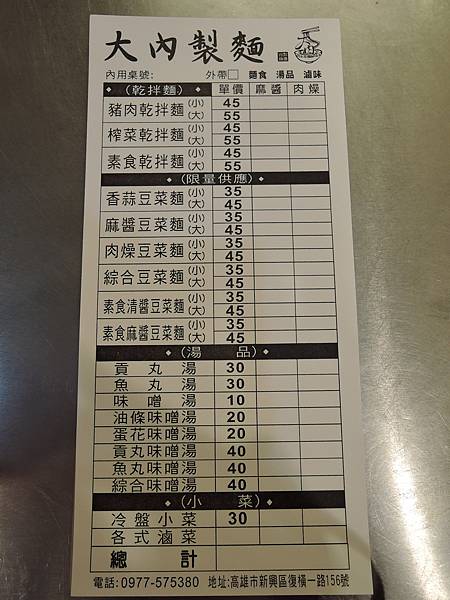 大內製麵
內用桌號: 外帶□ 麵食 湯品 滷味
(乾拌麵) 單價 麻醬 肉燥
豬肉乾拌麵 (小) 45
(大) 55
榨菜乾拌麵 (小) 45
(大) 55
素食乾拌麵 (小) 45
(大) 55
(限量供應)
香蒜豆菜麵 (小) 35
(大) 45
麻醬豆菜麵 (小) 35
(大) 45
肉燥豆菜麵 (小) 35
(大) 45
綜合豆菜麵 (小) 35
(大) 45
素食清醬豆菜麵 (小) 35
(大) 45
素食麻醬豆菜麵 (小) 35
(大) 45
(湯品)
貢丸湯 30
魚丸湯 30
味噌湯 10
油條味噌湯 20
蛋花味噌湯 20
貢丸味噌湯 40
魚丸味噌湯 40
綜合味噌湯 40
(小菜)
冷盤小菜 30
各式滷菜
總計
電話:0977-575380 地址:高雄市新興區復橫一路156號